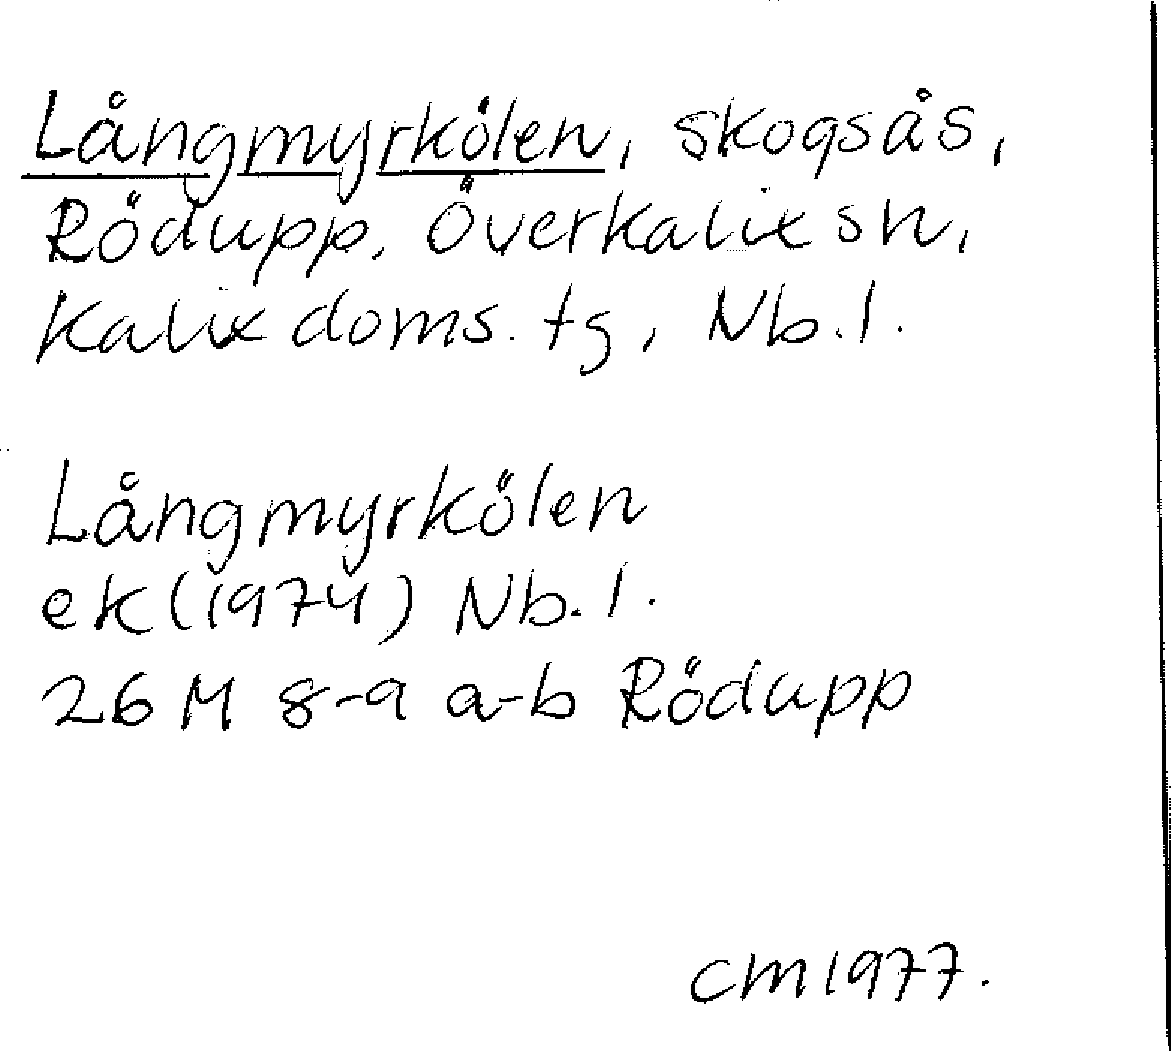 Långmyrkölen, skogsås,
Rödupp, Överkalix sn,
Kalix doms. tg, Nb. l.
Långmyrkölen
ek (1974) Nb. l.
26 M 8-9 a-b Rödupp
CM 1977.